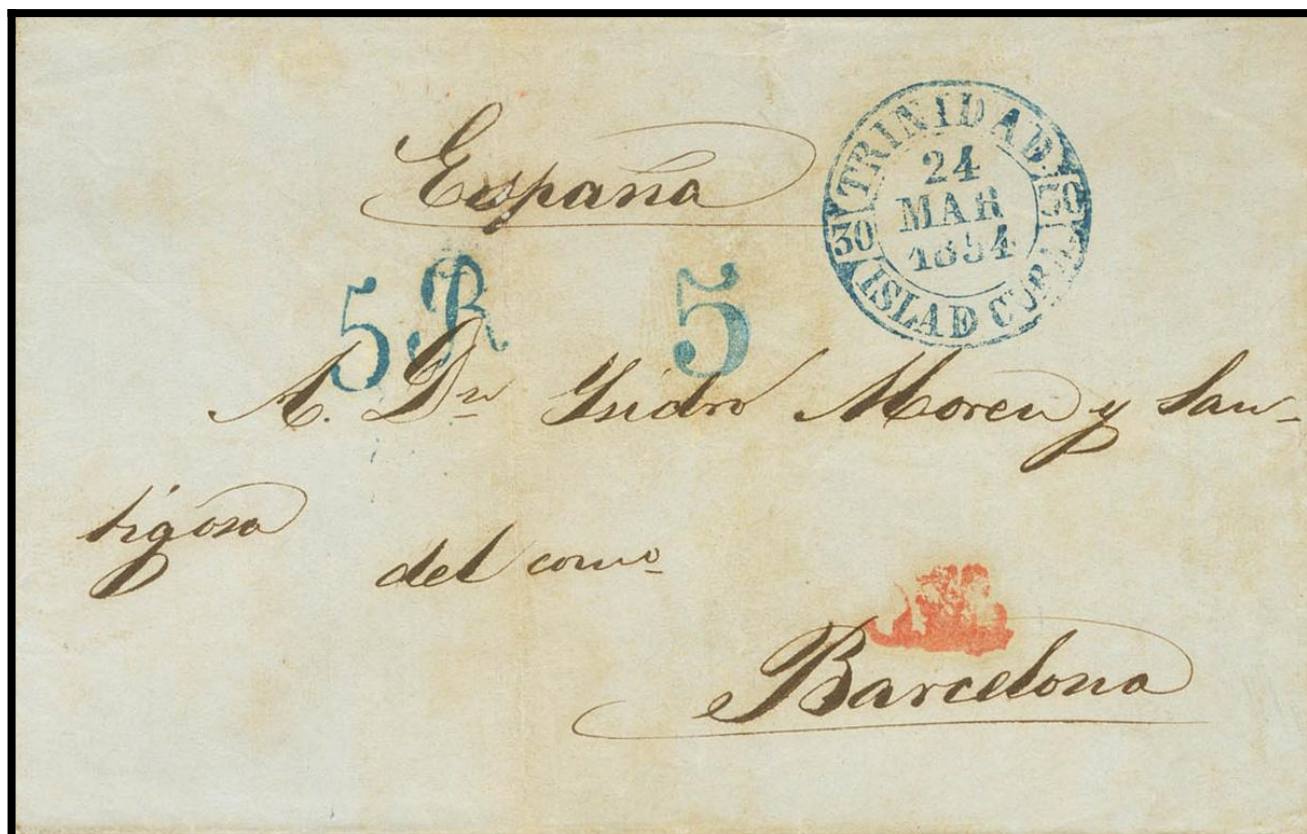 España
TRINIDAD.
24
MAR
1854
30
30
ISLA D CUBA
5 R 5
A. Dn Ysidro Moreu y San-
tigosa
del como
Barcelona